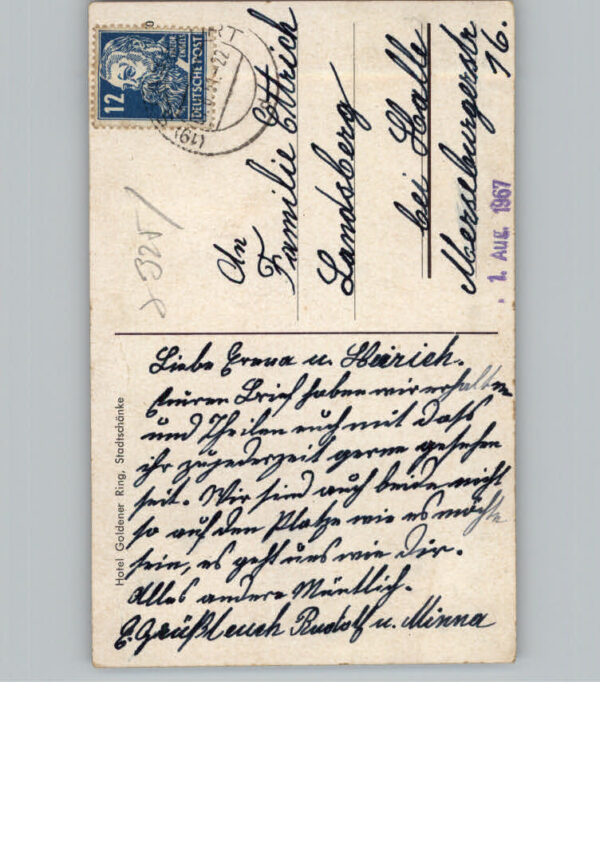 12
DEUTSCHE POST
An
Familie Ettrich
Landsberg
bei Halle
Merseburgerstr
16.
1. AUG. 1967
Hotel Goldener Ring, Stadtschänke
Liebe Erena u. Heirich.
Euren Brief haben wir erhalten
und Theilen euch mit dass
ihr zujederzeit gerne gesehen
seit. Wir sind auch beide nicht
so auf den Platze wie es möchte
sein, es geht uns wie Dir.
Alles andere Müntlich.
E. Grüßt euch Rudolf u. Minna